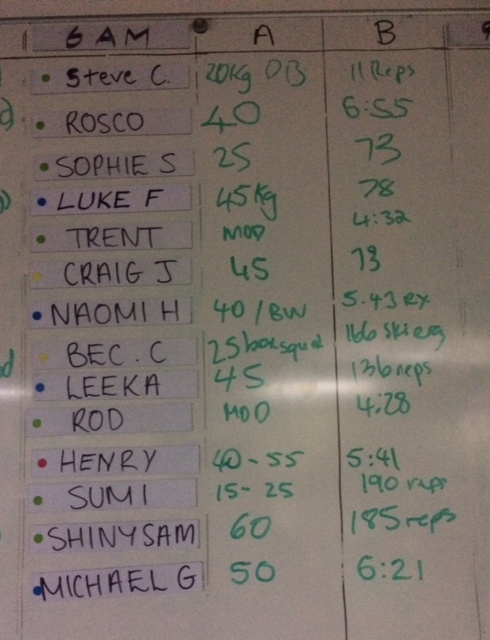 6 AM A B 9
Steve C. 20kg DB 11 Reps
ROSCO 40 6:55
SOPHIE S 25 73
LUKE F 45kg 78
TRENT MOD 4:32
CRAIG J 45 73
NAOMI H 40 / BW 5.43 RX
BEC. C 25 box squat 166 Ski erg
LEEKA 45 136 reps
ROD MOD 4:28
HENRY 40-55 5:41
SUMI 15-25 190 reps
SHINY SAM 60 185 reps
MICHAEL G 50 6:21